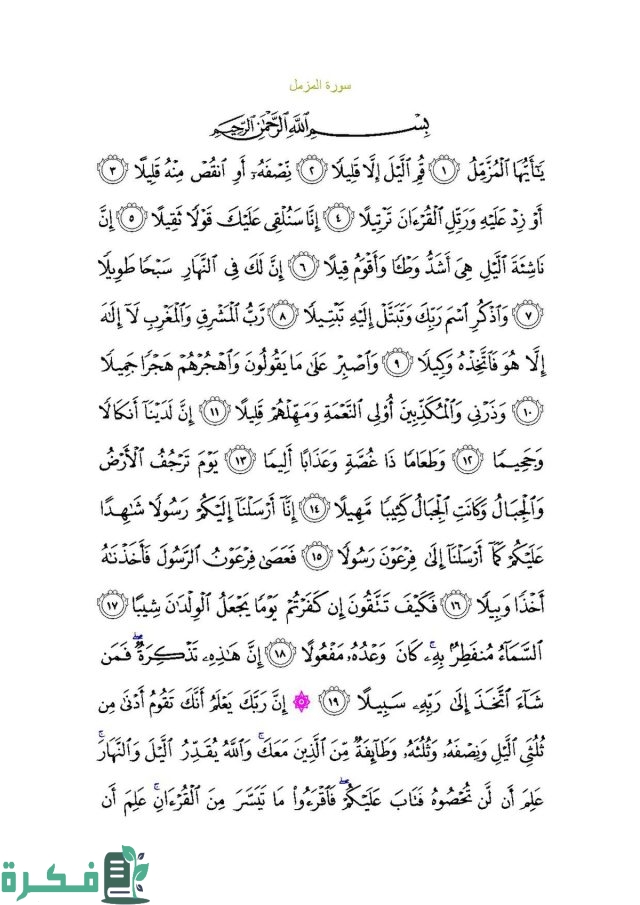 سورة المزمل
بِسْمِ اللَّهِ الرَّحْمَٰنِ الرَّحِيمِ
يَٰٓأَيُّهَا الْمُزَّمِّلُ ﴿١﴾ قُمِ الَّيْلَ إِلَّا قَلِيلًا ﴿٢﴾ نِصْفَهُۥٓ أَوِ انقُصْ مِنْهُ قَلِيلًا ﴿٣﴾
أَوْ زِدْ عَلَيْهِ وَرَتِّلِ الْقُرْءَانَ تَرْتِيلًا ﴿٤﴾ إِنَّا سَنُلْقِى عَلَيْكَ قَوْلًا ثَقِيلًا ﴿٥﴾ إِنَّ
نَاشِئَةَ الَّيْلِ هِىَ أَشَدُّ وَطْـًٔا وَأَقْوَمُ قِيلًا ﴿٦﴾ إِنَّ لَكَ فِى النَّهَارِ سَبْحًا طَوِيلًا
﴿٧﴾ وَاذْكُرِ اسْمَ رَبِّكَ وَتَبَتَّلْ إِلَيْهِ تَبْتِيلًا ﴿٨﴾ رَّبُّ الْمَشْرِقِ وَالْمَغْرِبِ لَآ إِلَٰهَ
إِلَّا هُوَ فَاتَّخِذْهُ وَكِيلًا ﴿٩﴾ وَاصْبِرْ عَلَىٰ مَا يَقُولُونَ وَاهْجُرْهُمْ هَجْرًا جَمِيلًا
﴿١٠﴾ وَذَرْنِى وَالْمُكَذِّبِينَ أُو۟لِى النَّعْمَةِ وَمَهِّلْهُمْ قَلِيلًا ﴿١١﴾ إِنَّ لَدَيْنَآ أَنكَالًا
وَجَحِيمًا ﴿١٢﴾ وَطَعَامًا ذَا غُصَّةٍ وَعَذَابًا أَلِيمًا ﴿١٣﴾ يَوْمَ تَرْجُفُ الْأَرْضُ
وَالْجِبَالُ وَكَانَتِ الْجِبَالُ كَثِيبًا مَّهِيلًا ﴿١٤﴾ إِنَّآ أَرْسَلْنَآ إِلَيْكُمْ رَسُولًا شَٰهِدًا
عَلَيْكُمْ كَمَآ أَرْسَلْنَآ إِلَىٰ فِرْعَوْنَ رَسُولًا ﴿١٥﴾ فَعَصَىٰ فِرْعَوْنُ الرَّسُولَ فَأَخَذْنَٰهُ
أَخْذًا وَبِيلًا ﴿١٦﴾ فَكَيْفَ تَتَّقُونَ إِن كَفَرْتُمْ يَوْمًا يَجْعَلُ الْوِلْدَٰنَ شِيبًا ﴿١٧﴾
السَّمَآءُ مُنفَطِرٌۢ بِهِۦ ۚ كَانَ وَعْدُهُۥ مَفْعُولًا ﴿١٨﴾ إِنَّ هَٰذِهِۦ تَذْكِرَةٌ ۖ فَمَن
شَآءَ اتَّخَذَ إِلَىٰ رَبِّهِۦ سَبِيلًا ﴿١٩﴾ ۞ إِنَّ رَبَّكَ يَعْلَمُ أَنَّكَ تَقُومُ أَدْنَىٰ مِن
ثُلُثَىِ الَّيْلِ وَنِصْفَهُۥ وَثُلُثَهُۥ وَطَآئِفَةٌ مِّنَ الَّذِينَ مَعَكَ ۚ وَاللَّهُ يُقَدِّرُ الَّيْلَ وَالنَّهَارَ ۚ
عَلِمَ أَن لَّن تُحْصُوهُ فَتَابَ عَلَيْكُمْ ۖ فَاقْرَءُوا۟ مَا تَيَسَّرَ مِنَ الْقُرْءَانِ ۚ عَلِمَ أَن
فكرة